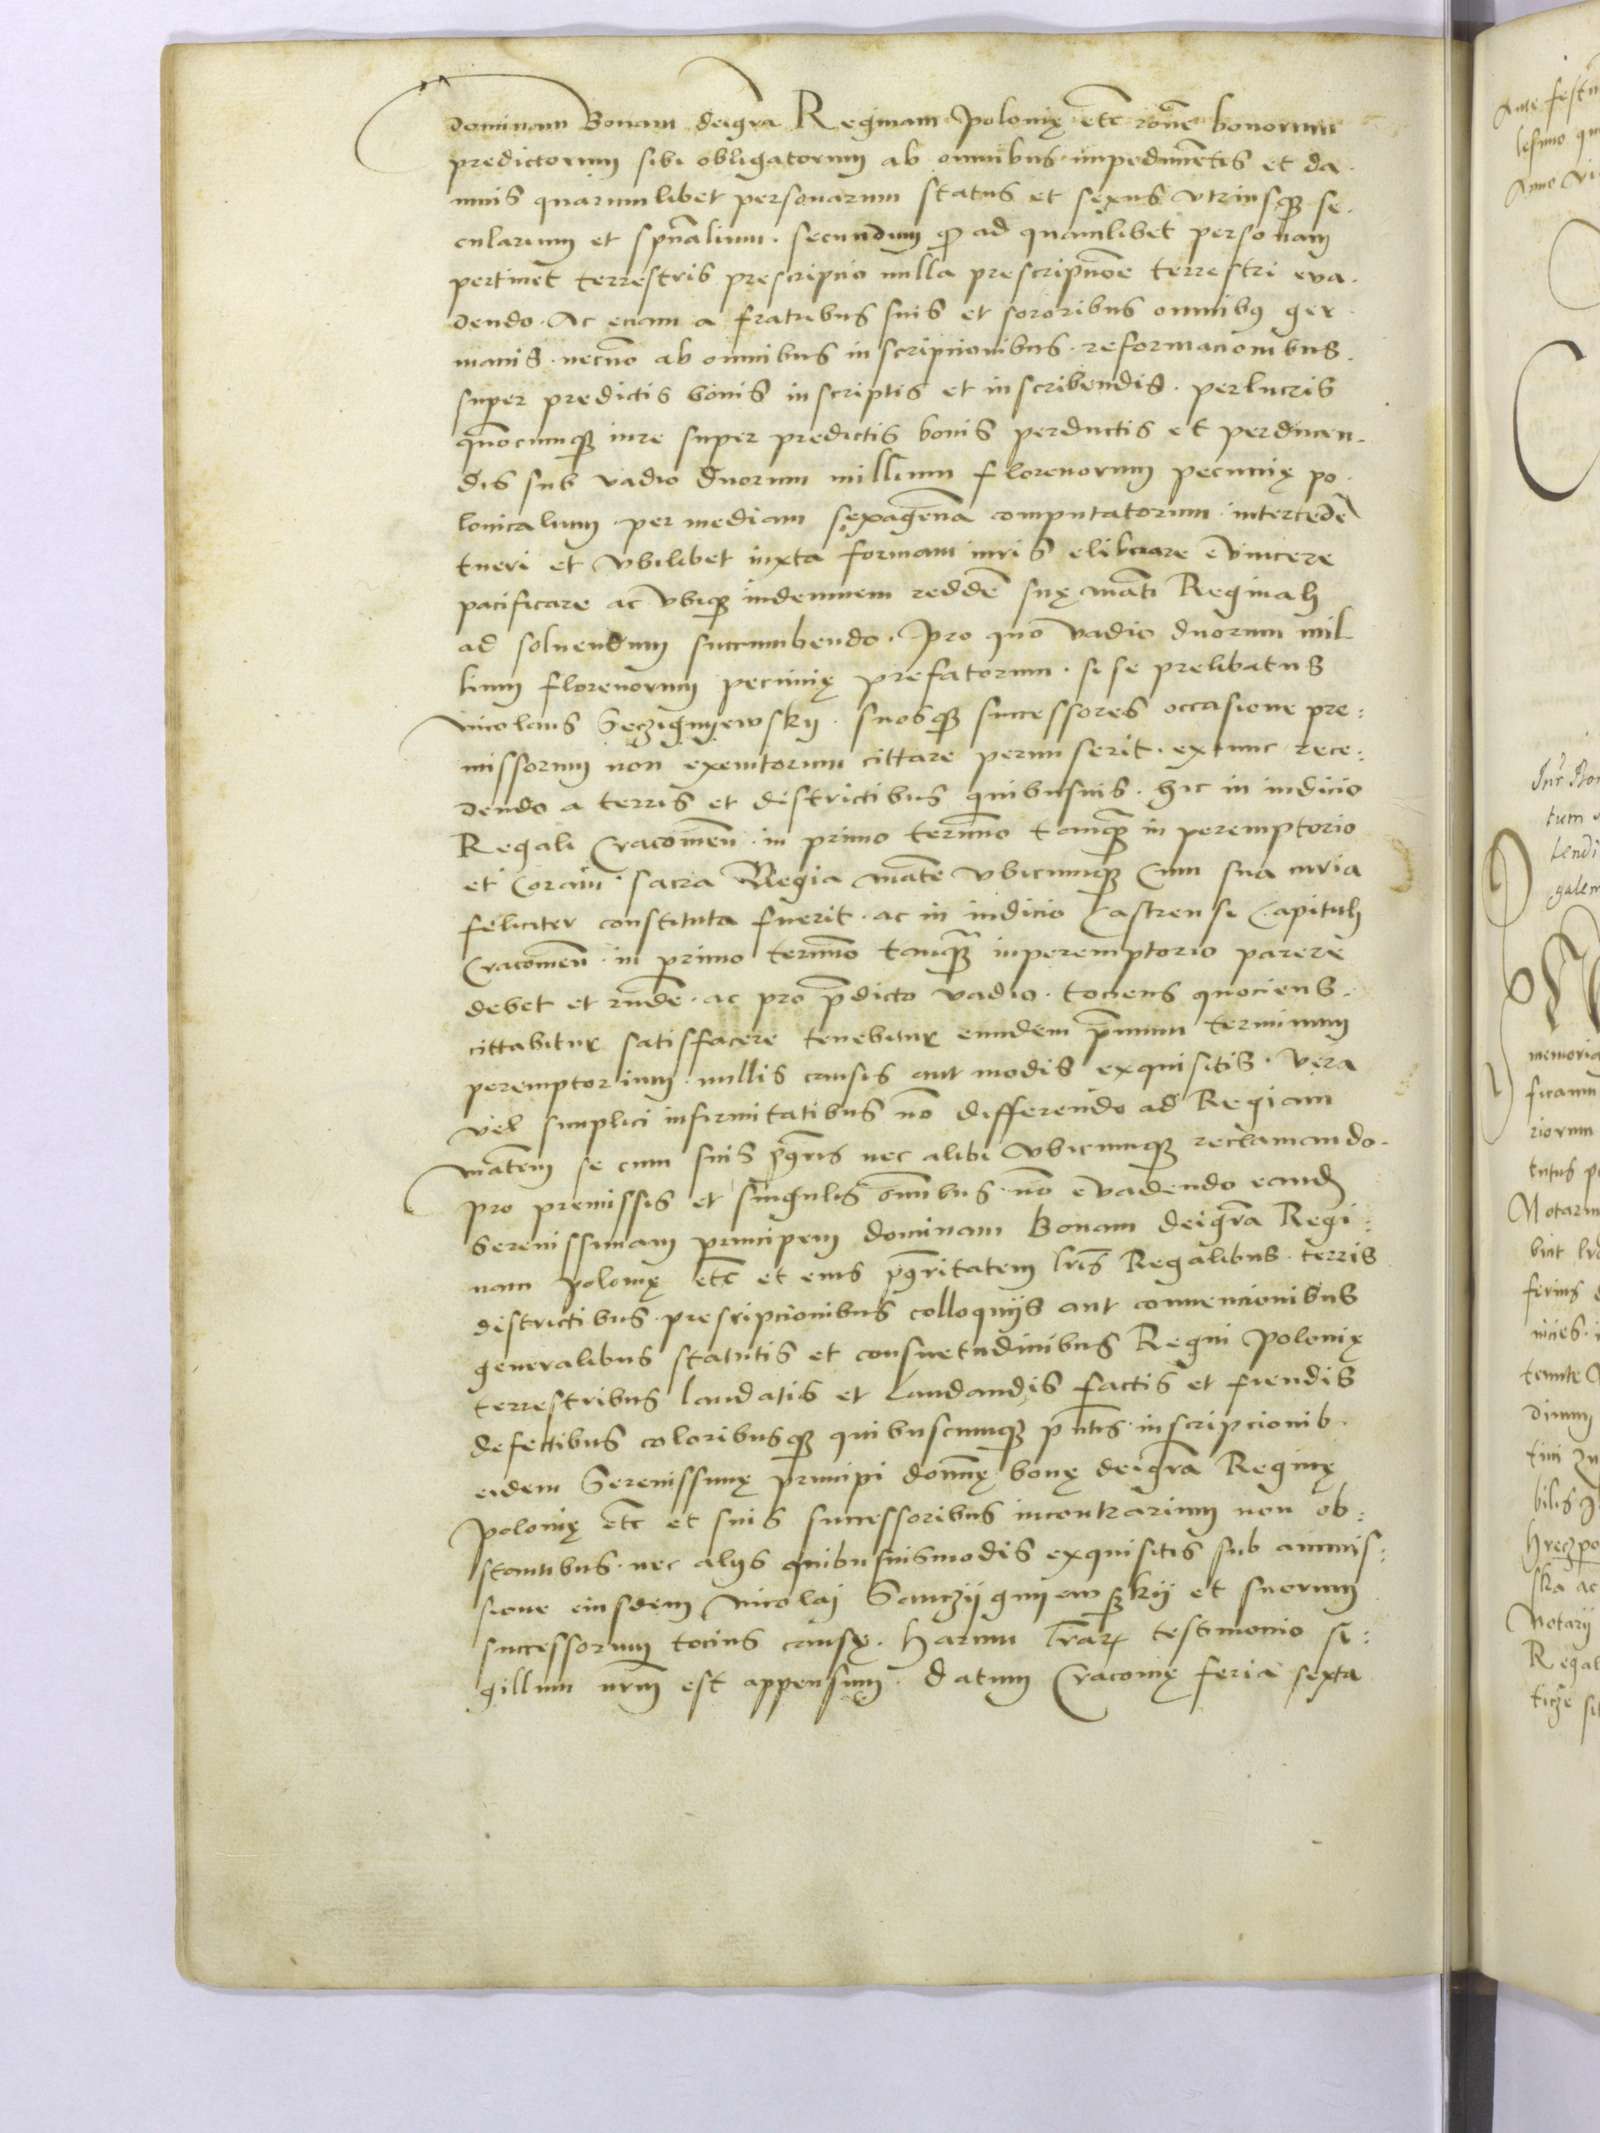 dominam Bonam deigra Reginam Polonię etc rone bonorum
predictorum sibi obligatorum ab omnibus impedimentis et da.
mnis quarumlibet personarum status et sexus vtriusq se.
cularium et spualium. secundum q ad quamlibet personam
pertinet terrestris prescripcio nulla prescripcioe terrestri eva.
dendo. Ac eciam a fratribus suis et sororibus omnibq ger
manis. necno ab omnibus inscripcionibus. reformacionibus.
super predictis bonis inscriptis et inscribendis. perlucris
quocumq iure super predictis bonis perductis et perducen.
dis sub vadio duorum millium florenorum pecunię po.
lonicalium. per mediam sexagena computatorum. intercede
tueri et vbilibet iuxta formam iuris elibrare evincere
pacificare ac vbiq indemnem redde suę mati Reginali
ad soluendum succumbendo. Pro quo vadio duorum mil
lium florenorum pecunię prefatorum. si se prelibatus
Nicolaus Seczignyewsky. suosq successores occasione pre:
missorum non exemtorum cittare permiserit. extunc rece:
dendo a terris et districtibus quibusuis. hic in iudicio
Regali Cracouien. in primo termino tamq in peremptorio
et Coram. sacra Regia mate vbicumq Cum sua curia
feliciter constituta fuerit. ac in iudicio Castrensi Capituli
Cracouien. in primo termino tamq inperemptorio parere
debet et rnde. ac pro pdicto vadio. tociens quociens.
cittabitur satisfacere tenebitur eundem pmum terminum
peremptorium. nullis causis aut modis exquisitis. vera
vel simplici infirmitatibus no differendo ad Regiam
matem se cum suis pqris nec alibi vbicumq reclamando.
pro premissis et singulis omibus. no evadendo eand
Serenissimam principem dominam Bonam deigra Regi:
nam Polonię etc et eius pqritatem lris Regalibus. terris
districtibus. prescripcionibus colloquijs aut convencionibus
generalibus statutis et consuetudinibus Regni Polonię
terrestribus laudatis et Laudandis factis et fiendis
defectibus coloribusq quibuscumq pntis. inscripcionib.
eidem Serenissimę principi domnę bonę deigra Reginę
Polonię etc et suis successoribus incontrarium non ob:
stantibus. nec alijs quibusuismodis exquisitis sub amis:
sione eiusdem Nicolaj Sanczijgnijewskij et suorum
successorum tocius causę. Harum lrar testimonio si:
gillum nrm est appensum. Datum Cracouię feria sexta